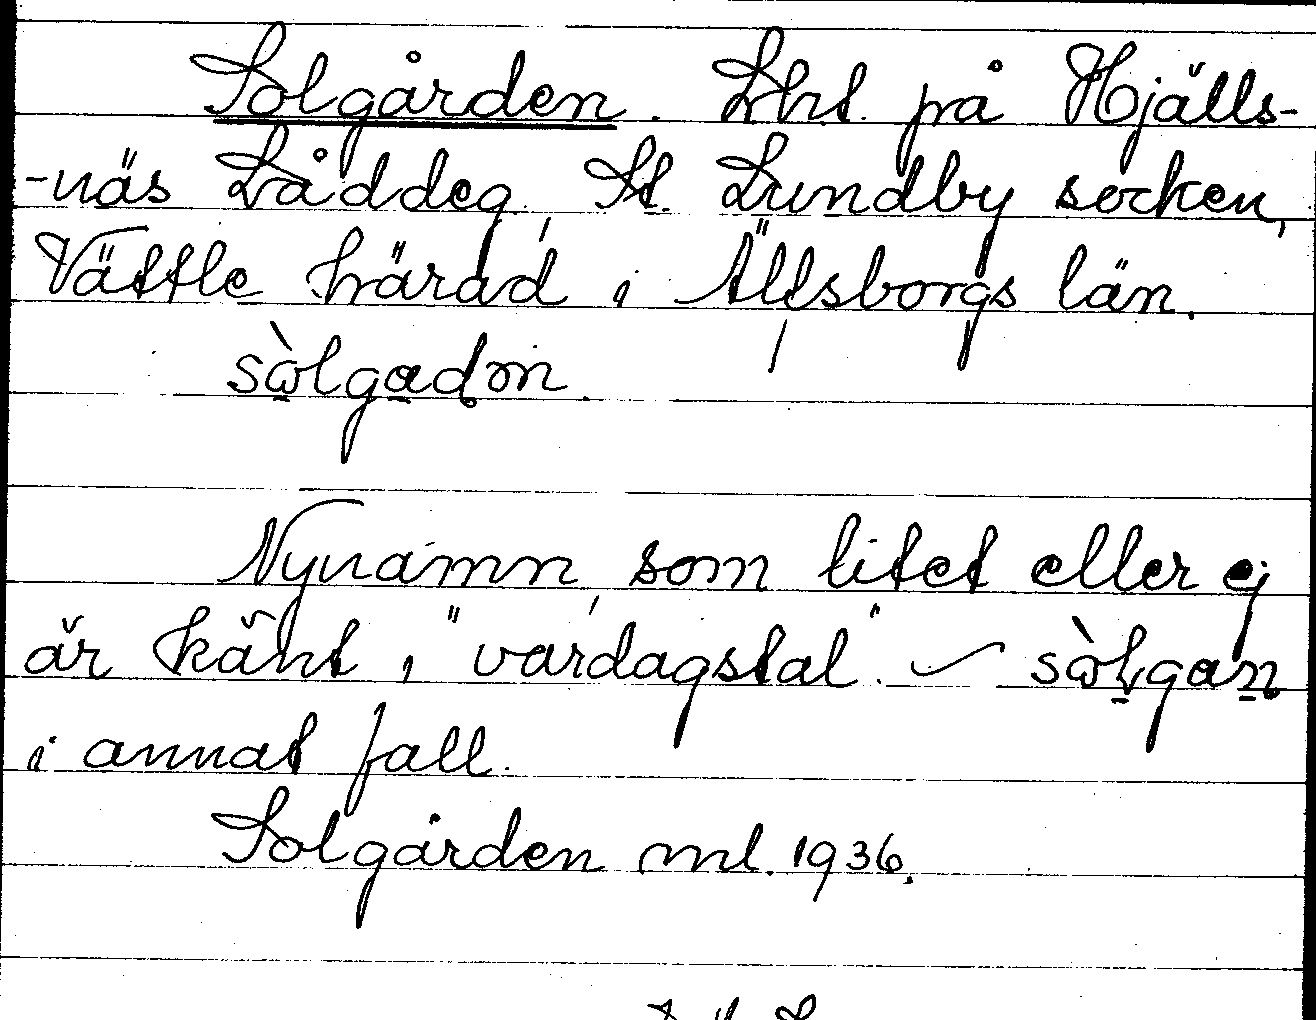 Solgården. Lht. på Hjälls-
-näs Låddeg, St. Lundby socken,
Vättle härad i Älfsborgs län.
sòlgadɷn.
Nynamn, som litet eller ej
är känt i "vardagstal". sòlgan
i annat fall.
Solgården ml. 1936.